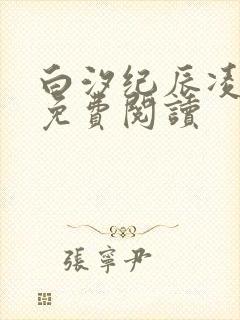 白汐纪辰凌
免費閱讀
張寧尹